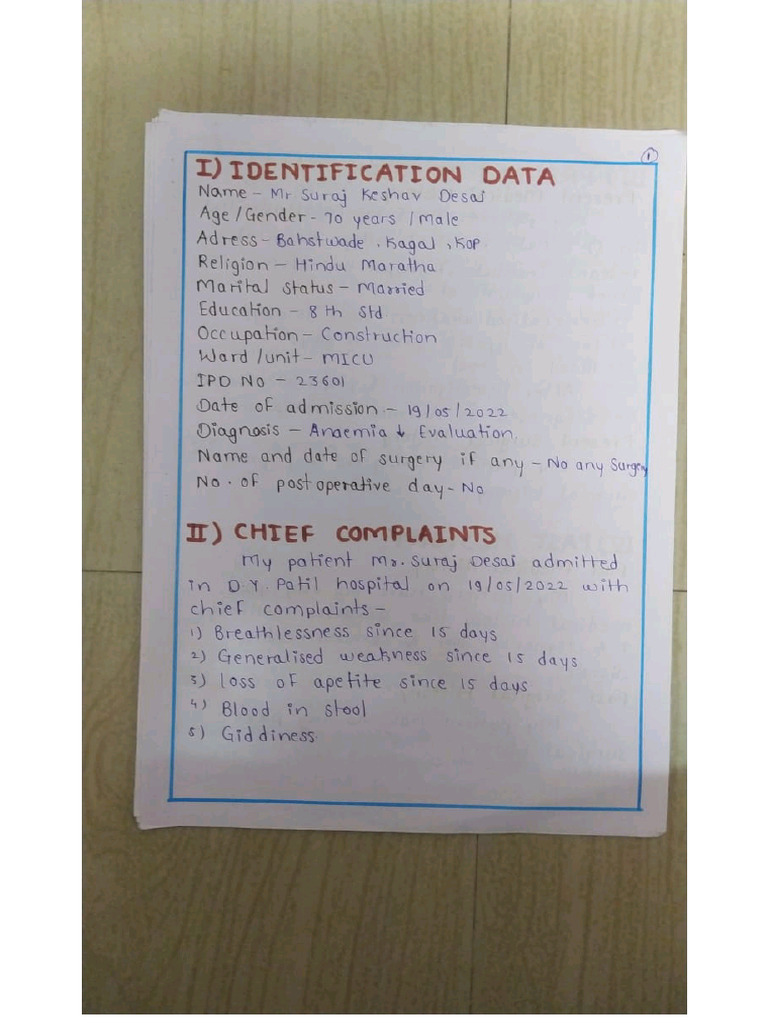 1
I) IDENTIFICATION DATA
Name - Mr Suraj Keshav Desai
Age / Gender - 70 years / Male
Adress - Bahstwade , Kagal , KOP
Religion - Hindu Maratha
Marital status - Married
Education - 8 th std
Occupation - Construction
Ward / unit - MICU
IPD No - 23601
Date of admission - 19/05/2022
Diagnosis - Anaemia ↓ Evaluation.
Name and date of surgery if any - No any Surgery
No. of postoperative day - No
II) CHIEF COMPLAINTS
My patient Mr. Suraj Desai admitted
in D.Y. Patil hospital on 19/05/2022 with
chief complaints -
1) Breathlessness since 15 days
2) Generalised weakness since 15 days
3) loss of apetite since 15 days
4) Blood in stool
5) Giddiness.